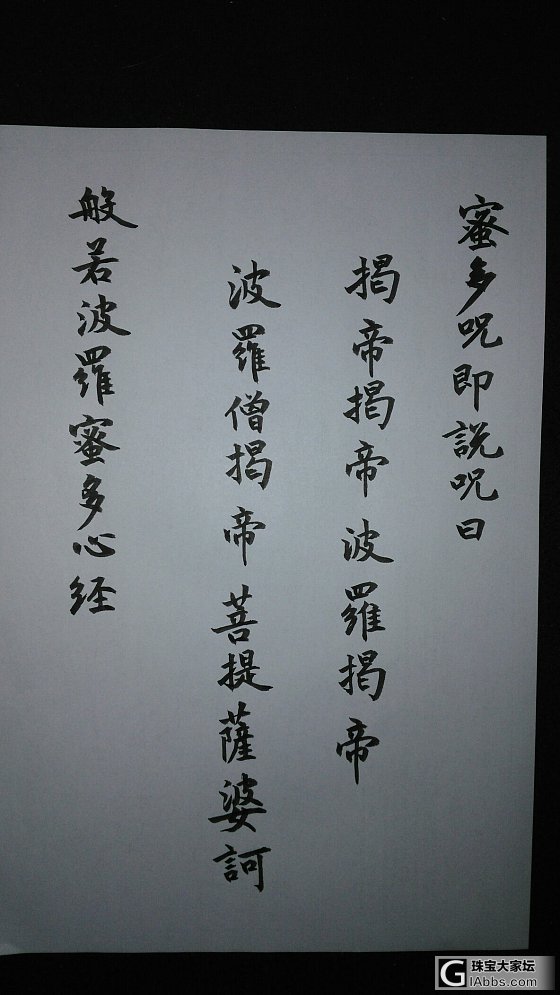 蜜多呪即説呪曰
揭帝揭帝波羅揭帝
波羅僧揭帝菩提薩婆訶
般若波羅蜜多心経
珠宝大家坛
GIAbbs.com